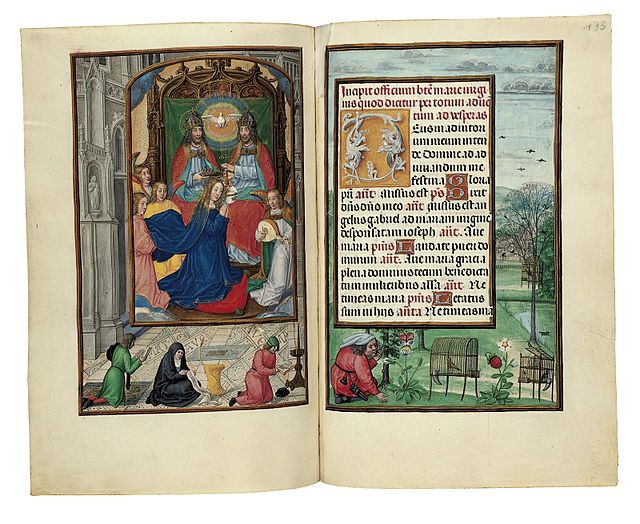 Incipit officium bēe marie virgi
nis quod dicitur per totum aduē
tum ad vesperas
Deus in adiutor
ium meum inten
de Domine ad ad
iuuandum me
festina Gloria
pri añt Missus est ps Dixit
dns dno meo añt Missus est an
gelus gabriel ad mariam uirginē
desponsatam ioseph añt Aue
maria psus Laudate pueri do
minum añt Aue maria gracia
plena dominus tecum benedicta
tu in mulieribus alla añt Ne
timeas maria psus Letatus
sum in hijs anta Ne timeas ma